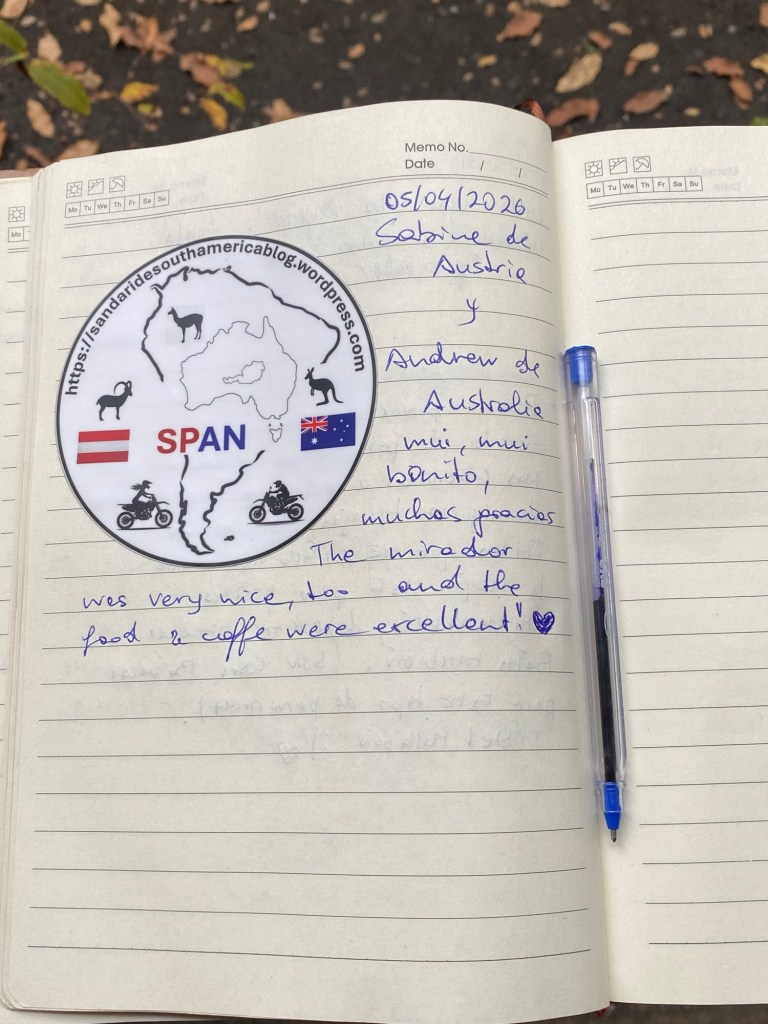 Memo No.
Date / /
Mo Tu We Th Fr Sa Su
Mo Tu We Th Fr Sa Su
Mo
05/04/2026
Sabine de
Austria
y
Andrew de
Australia
mui, mui
bonito,
muchas gracias
The mirador
was very nice, too and the
food & coffe were excellent!
https://sandaridesouthamericablog.wordpress.com
SPAN